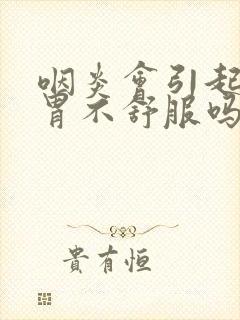 咽炎會引起
胃不舒服吗
貴有恒